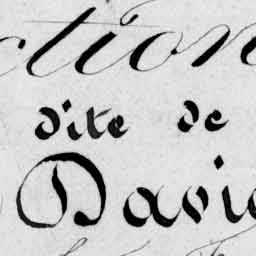 ction
dite de
Davie